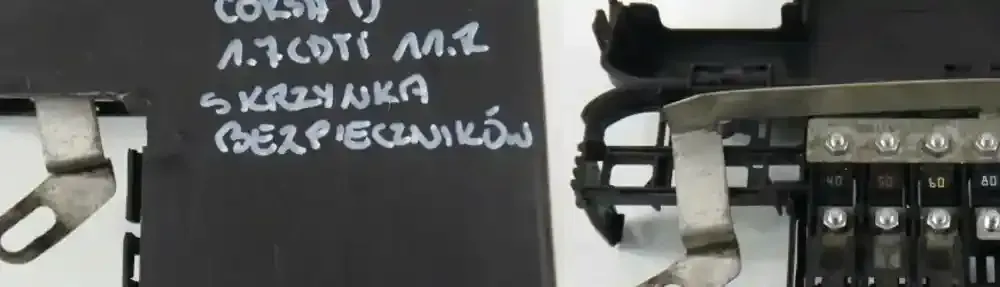 CORSA D
1.7CDTI 11.R
SKRZYNKA
BEZPIECZNIKÓW
40 50 60 80